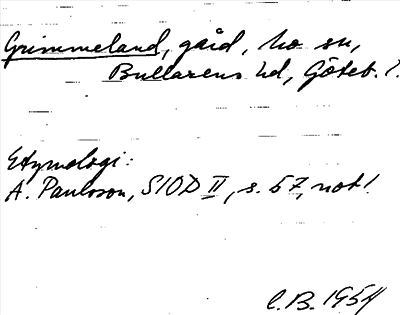 Grimmeland, gård, Mo sn,
Bullarens hd, Göteb. l.
Etymologi:
A. Paulsson, SIOD II, s. 57, not 1.
C.B. 1954